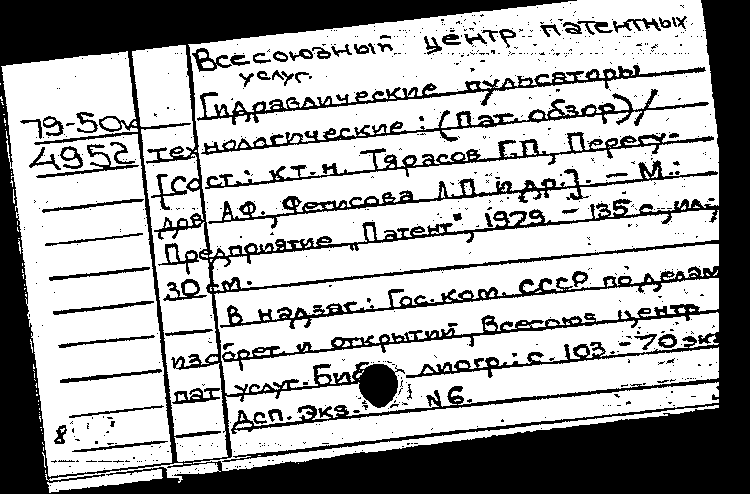 Всесоюзный центр патентных
услуг.
Гидравлические пульсаторы
79-50к
4952 технологические: (Пат. обзор)/
[Сост.: к.т.н. Тарасов Г.П., Перегу-
дов А.Ф., Фетисова Л.П. и др.]. – М.:
Предприятие „Патент", 1979. – 135 с., ил.;
30 см.
В надзаг.: Гос. ком. СССР по делам
изобрет. и открытий, Всесоюз. центр
пат. услуг. Библиогр.: с. 103. – 70 экз
Дсп. Экз. N6.
8